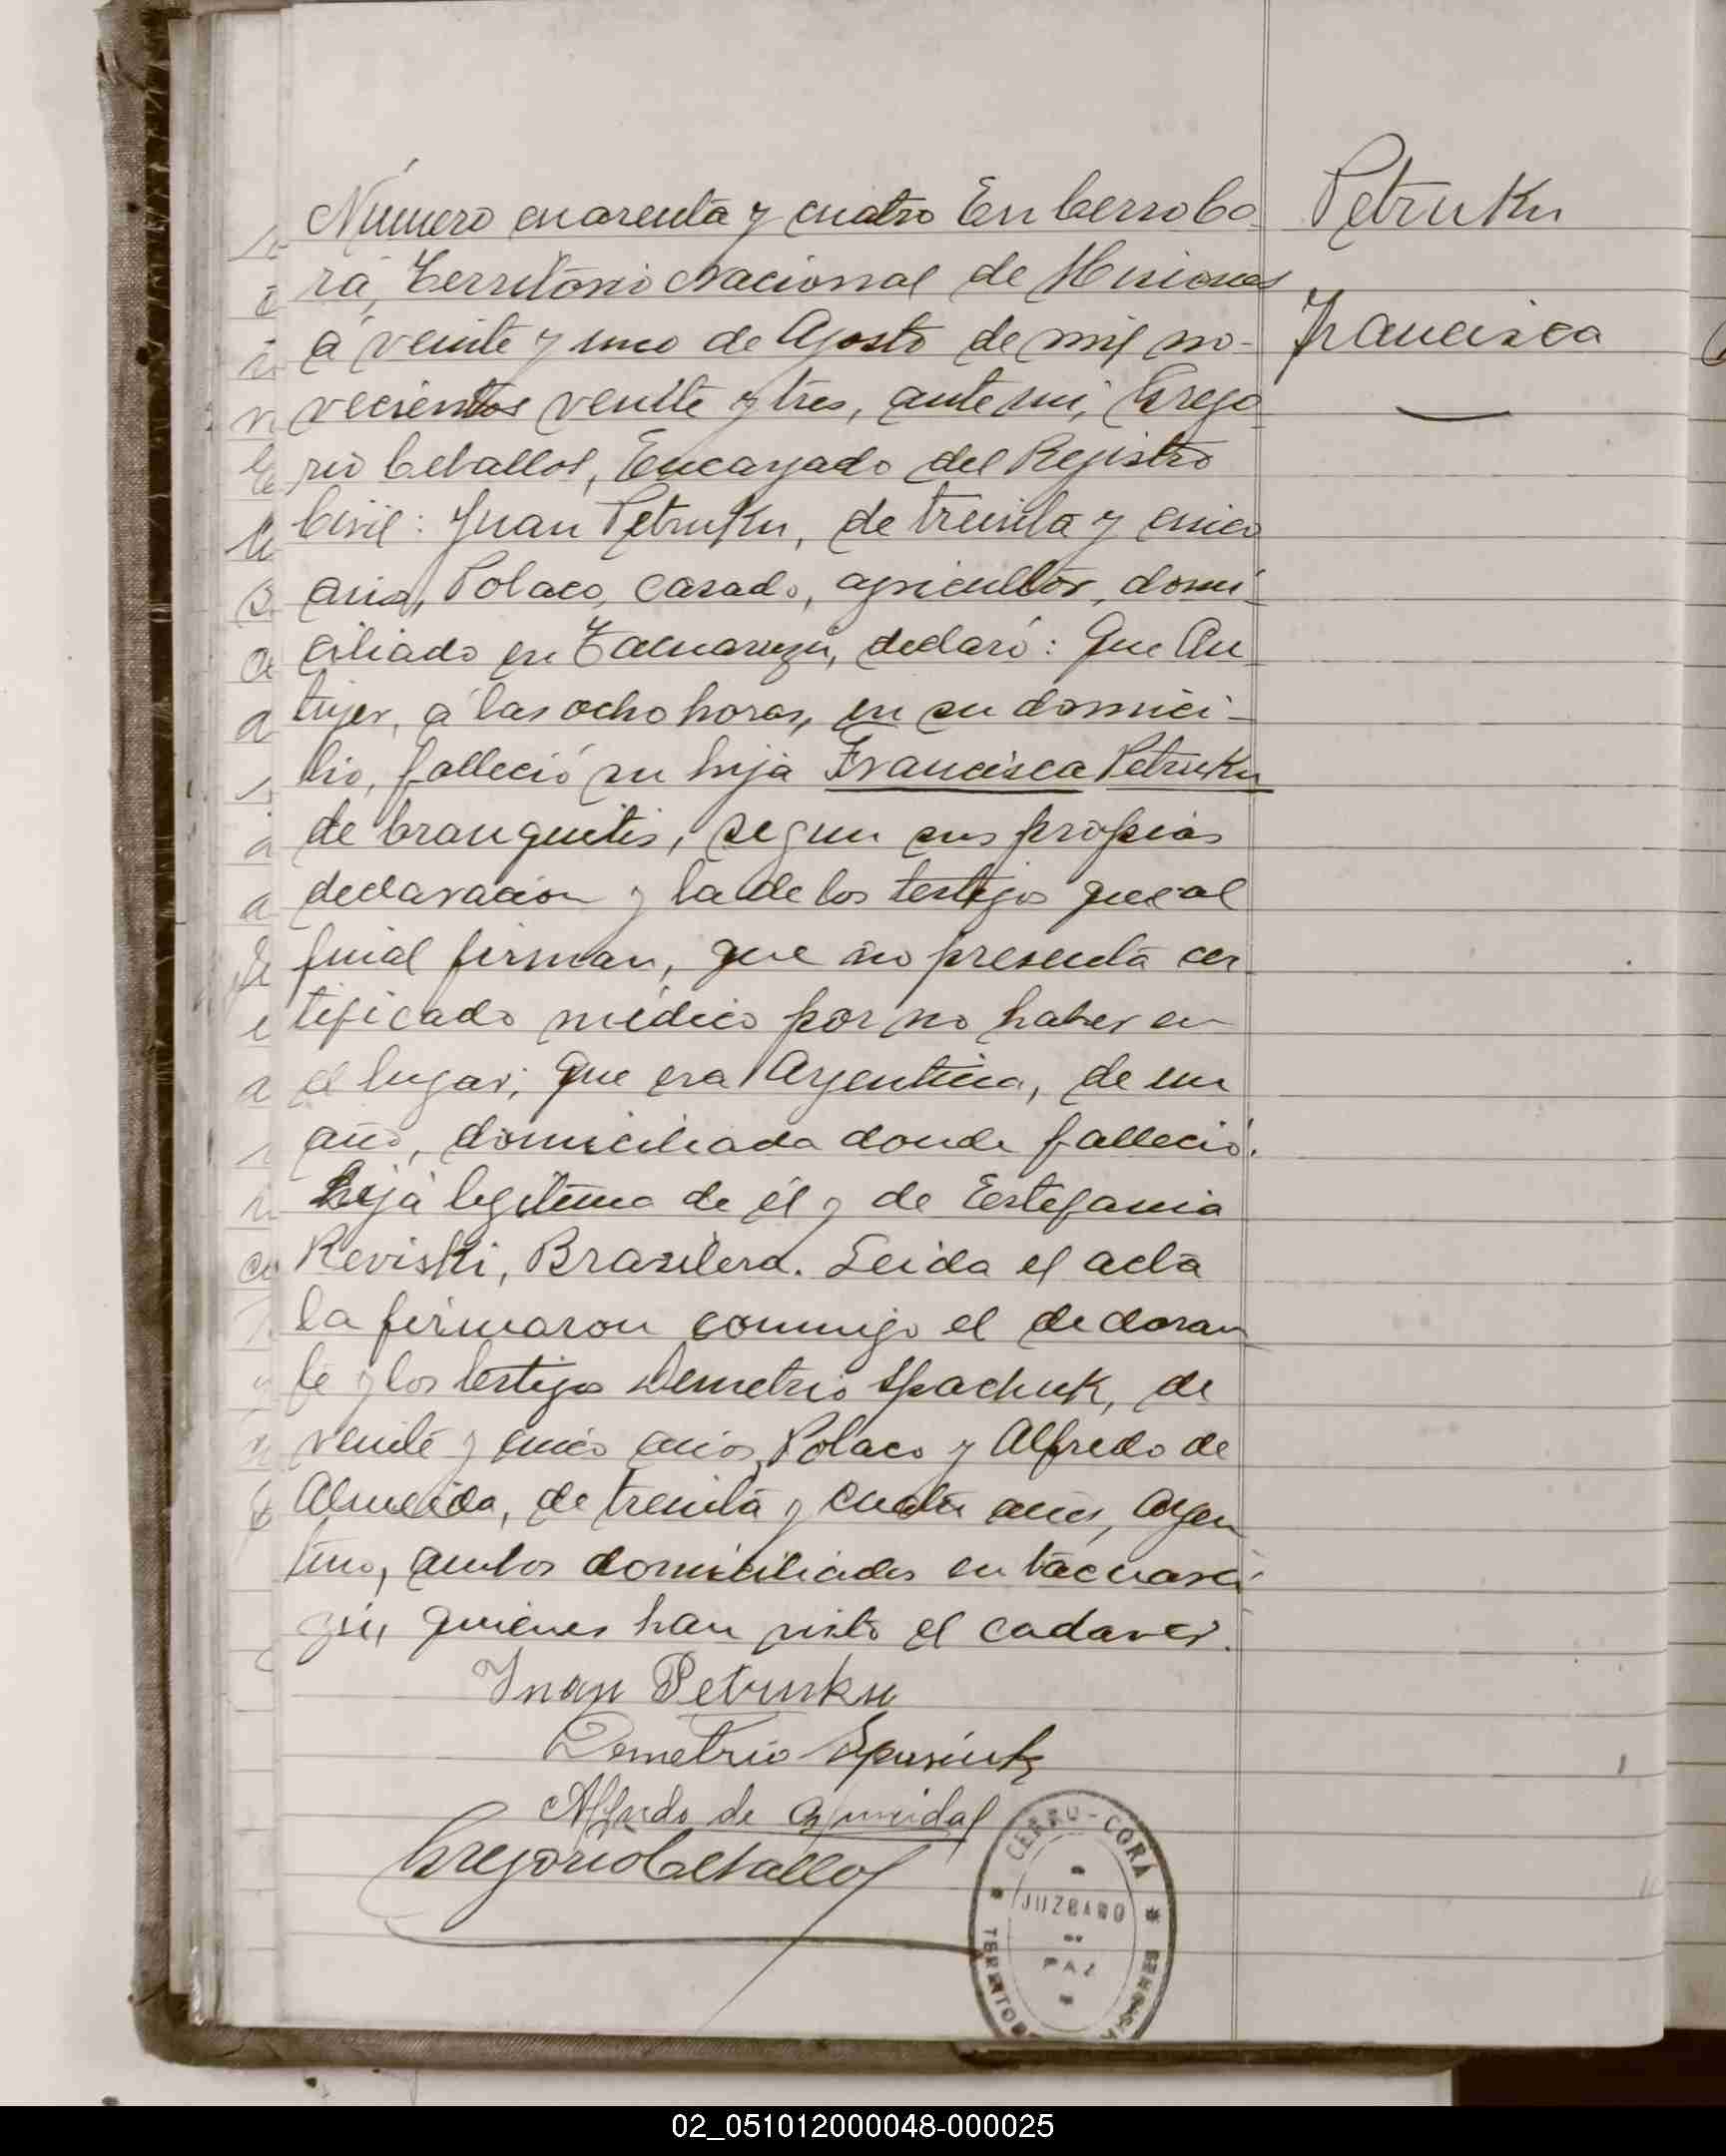 Número cuarenta y cuatro En Cerro Co-
rá, Territorio Nacional de Misiones
á veinte y uno de Agosto de mil no-
vecientos veinte y tres, ante mi, Grego
rio Ceballos, Encargado del Registro
Civil: Juan Petruku, de treinta y cinco
años, Polaco, casado, agricultor, domi-
ciliado en Tacuaruzú, declaró: Que An
tiyer, á las ocho horas, en su domici-
lio, falleció su hija Francisca Petruku
de branquitis, segun sus propias
declaracion y la de los testigos que al
final firman, que no presenta cer
tificado médico por no haber en
el lugar; que era Argentina, de un
año, domiciliada donde falleció.
hija legitima de él y de Estefania
Reviski, Brazilera. Leida el acta
la firmaron conmigo el declaran
te y los testigos Demetrio Spachuk, de
veinte y cinco años, Polaco y Alfredo de
Almeida, de treinta y cuatro años, argen
tino, ambos domiciliados en Tacuaru-
zú, quienes han visto el cadaver.
Juan Petruku
Demetrio
Alfredo de Almeida
Gregorio Ceballos
Petruku
Francisca
CERRO-CORÁ
JUZGADO
DE
PAZ
02_051012000048-000025